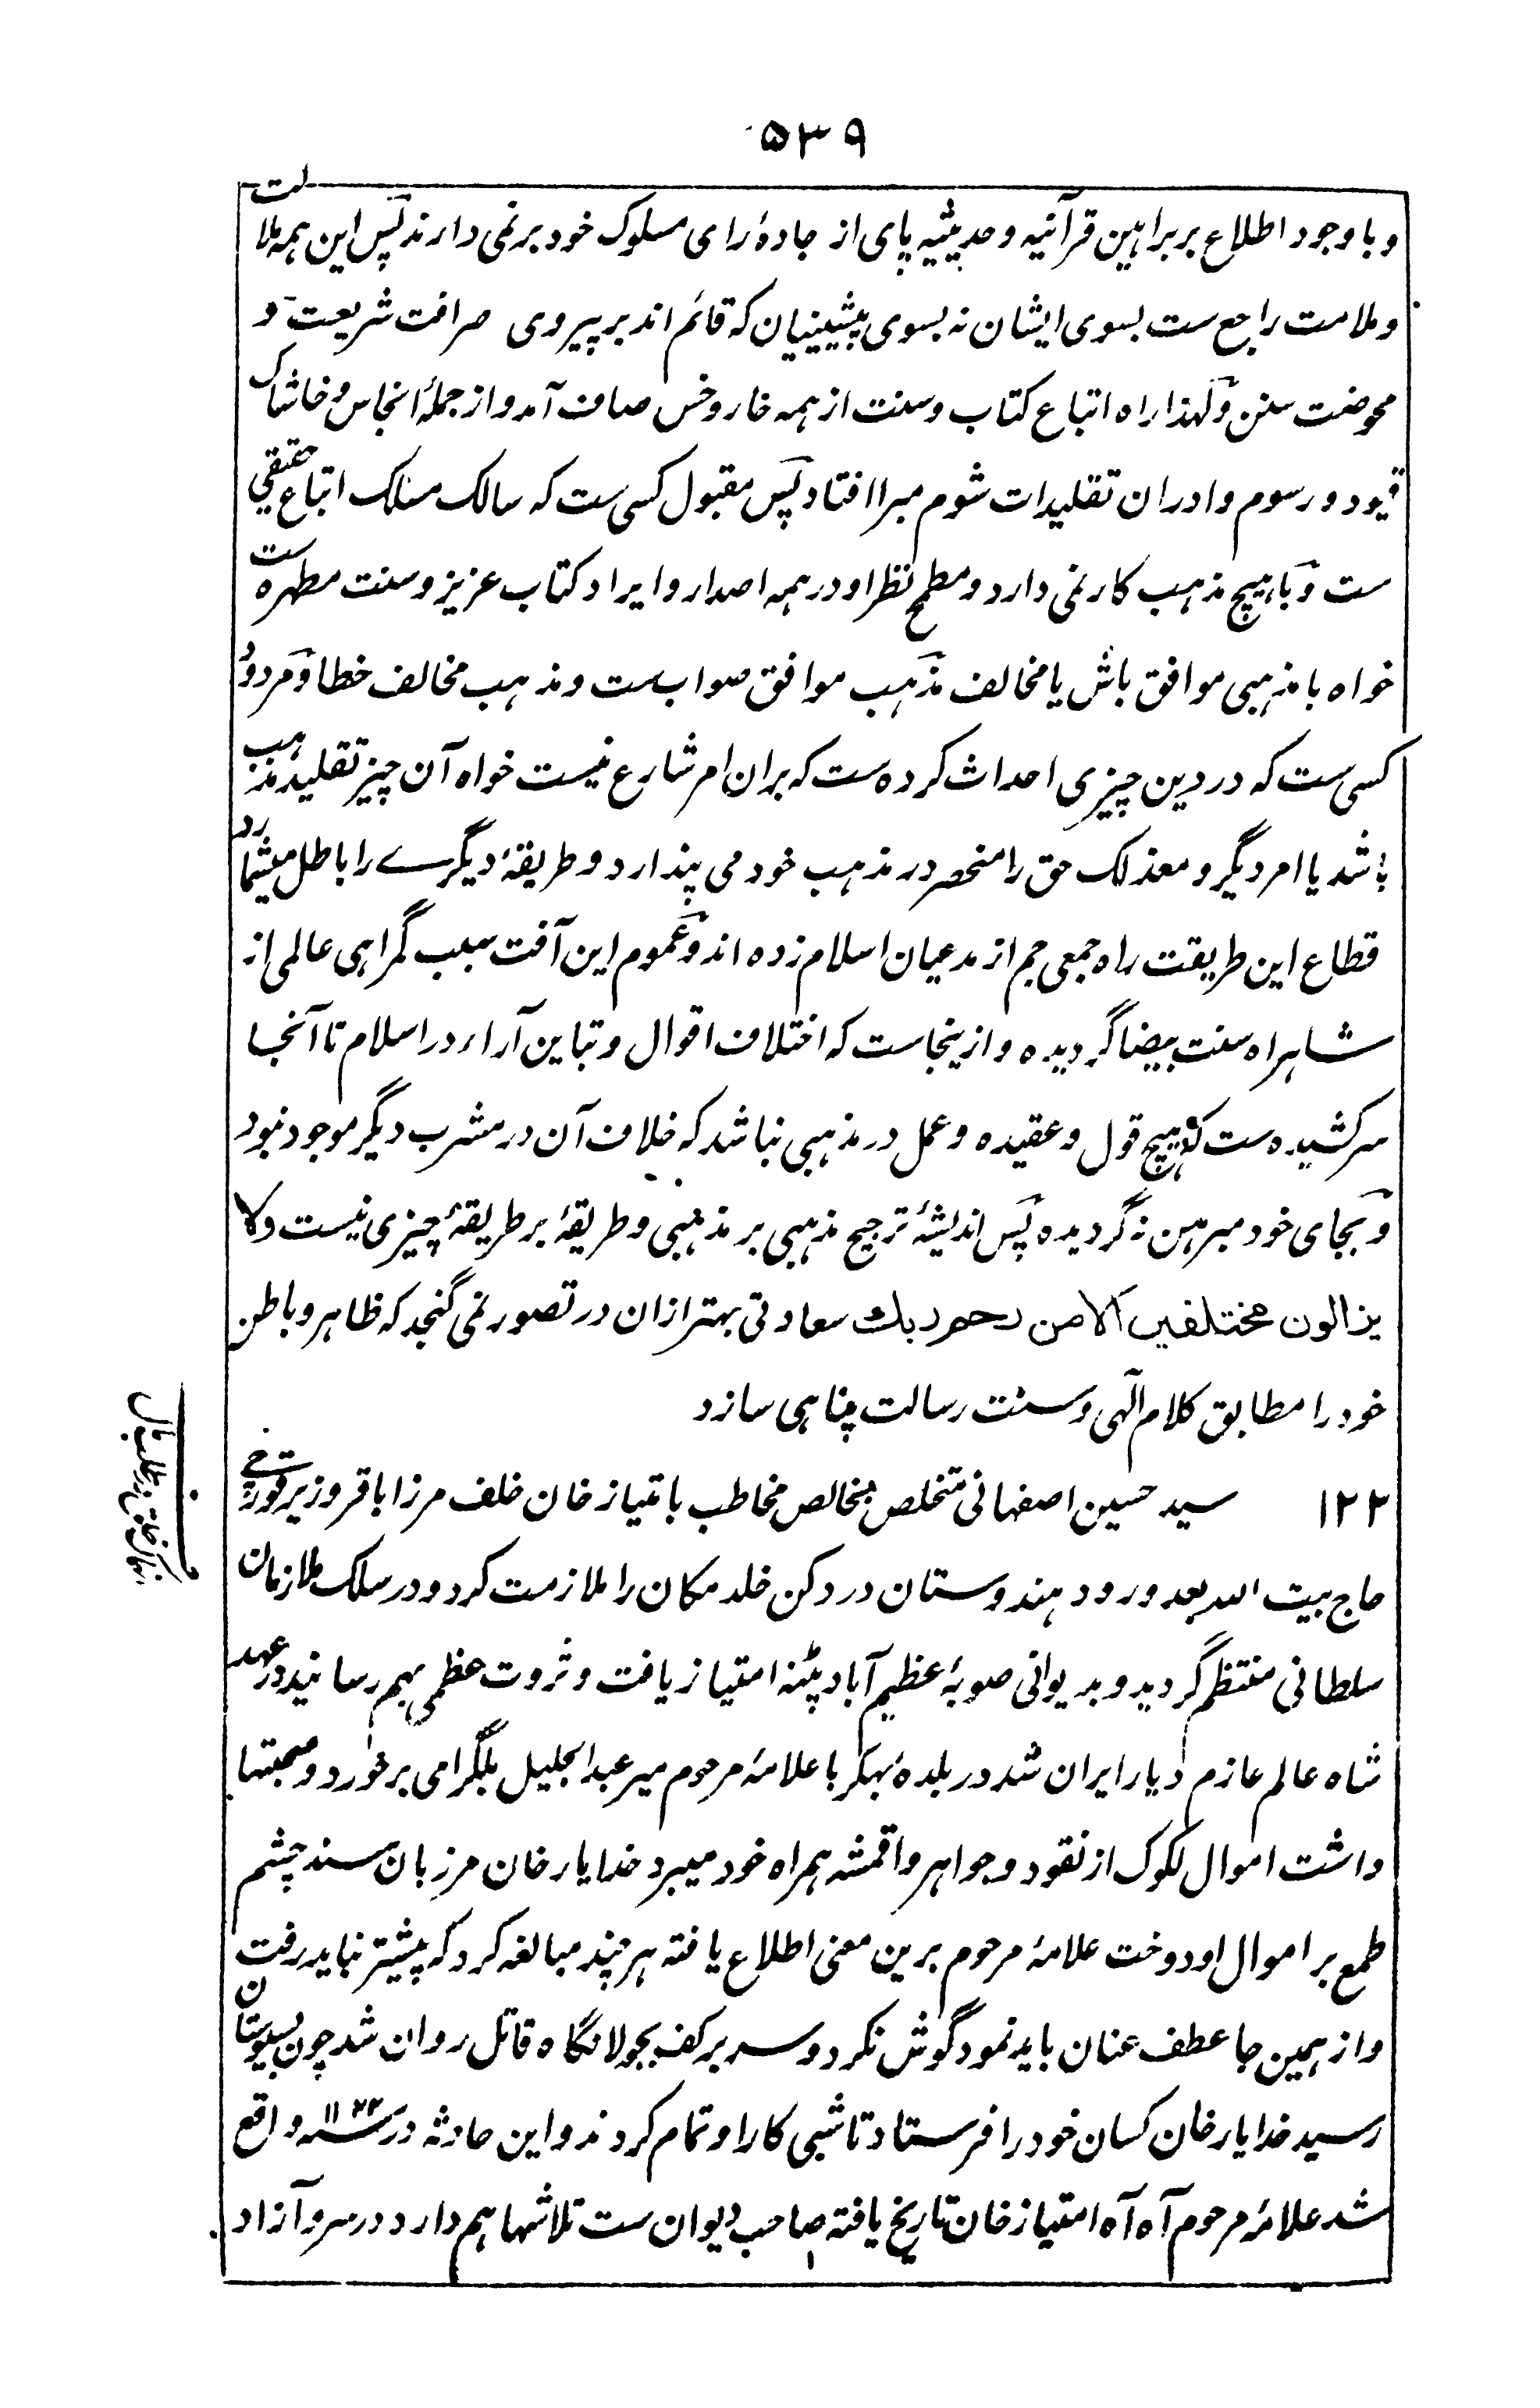 ۵۳۹
و با وجود اطلاع بر براهین قرآنیه و حدیثیه پای از جادۀ رای مسلوک خود بر نمی دارند پس این همه ملالت
و ملامت راجع ست بسوی ایشان نه بسوی پیشینیان که قائم اند بر پیروی صرافت شریعت و
محوضت سنن و لهذا راه اتباع کتاب و سنت از همه خار و خس صاف آمد و از جملۀ انجاس و خاشاک
قیود و رسوم و ادران تقلیدات شوم مبرا افتاد پس مقبول کسی ست که سالک مسلک اتباع حقیقی
ست و با هیچ مذهب کار نمی دارد و مطمح نظر او در همه اصدار و ایراد کتاب عزیز و سنت مطهره ست
خواه با مذهبی موافق باش یا مخالف مذهب موافق صواب ست و مذهب مخالف خطا و مردود
کسی ست که در دین چیزی احداث کرده ست که بران امر شارع نیست خواه آن چیز تقلید مذهب
باشد یا امر دیگر و معذلک حق را منحصر در مذهب خود می پندارد و طریقۀ دیگرے را باطل میشمارد
قطاع این طریقت راه جمعی جم از مدعیان اسلام زده اند و عموم این آفت سبب گمراهی عالمی از
شاهراه سنت بیضا گردیده و ازینجاست که اختلاف اقوال و تباین آراء در اسلام تا آنجا
سر کشیده ست که هیچ قول و عقیده و عمل در مذهبی نباشد که خلاف آن در مشرب دیگر موجود نبود
و بجای خود مبرهن نگردیده پس اندیشۀ ترجیح مذهبی بر مذهبی و طریقۀ بر طریقۀ چیزی نیست ولا
یزالون مختلفین الا من رحم ربك سعادتی بهتر ازان در تصور نمی گنجد که ظاهر و باطن
خود را مطابق کلام الهی و سنت رسالت پناهی سازد
۱۲۲ سید حسین اصفهانی متخلص بخالص مخاطب بامتیاز خان خلف مرزا باقر وزیر قورچی
حاج بیت الله بعد ورود هندوستان در دکن خلد مکان را ملازمت کرد و در سلک ملازمان
سلطانی منتظم گردید و بدیوانی صوبۀ عظیم آباد پٹنه امتیاز یافت و ثروت عظمی بهم رسانید در عهد
شاه عالم عازم دیار ایران شد در بلدۀ بهکر با علامۀ مرحوم میر عبدالجلیل بلگرامی برخورد و صحبتها
داشت اموال لکوک از نقود و جواهر و اقمشه همراه خود میبرد خدایار خان مرزبان سند چشم
طمع بر اموال او دوخت علامۀ مرحوم برین معنی اطلاع یافته هر چند مبالغه کرد که پیشتر نباید رفت
و از همین جا عطف عنان باید نمود گوش نکرد و سر بر کف بجولانگاه قاتل روان شد چون بسیوستان
رسید خدایار خان کسان خود را فرستاد تا شبی کار او تمام کردند و این حادثه در سنه ۱۱۲۲ واقع
شد علامۀ مرحوم آه آه امتیاز خان تاریخ یافته صاحب دیوان ست تلاشها هم دارد در سرو آزاد